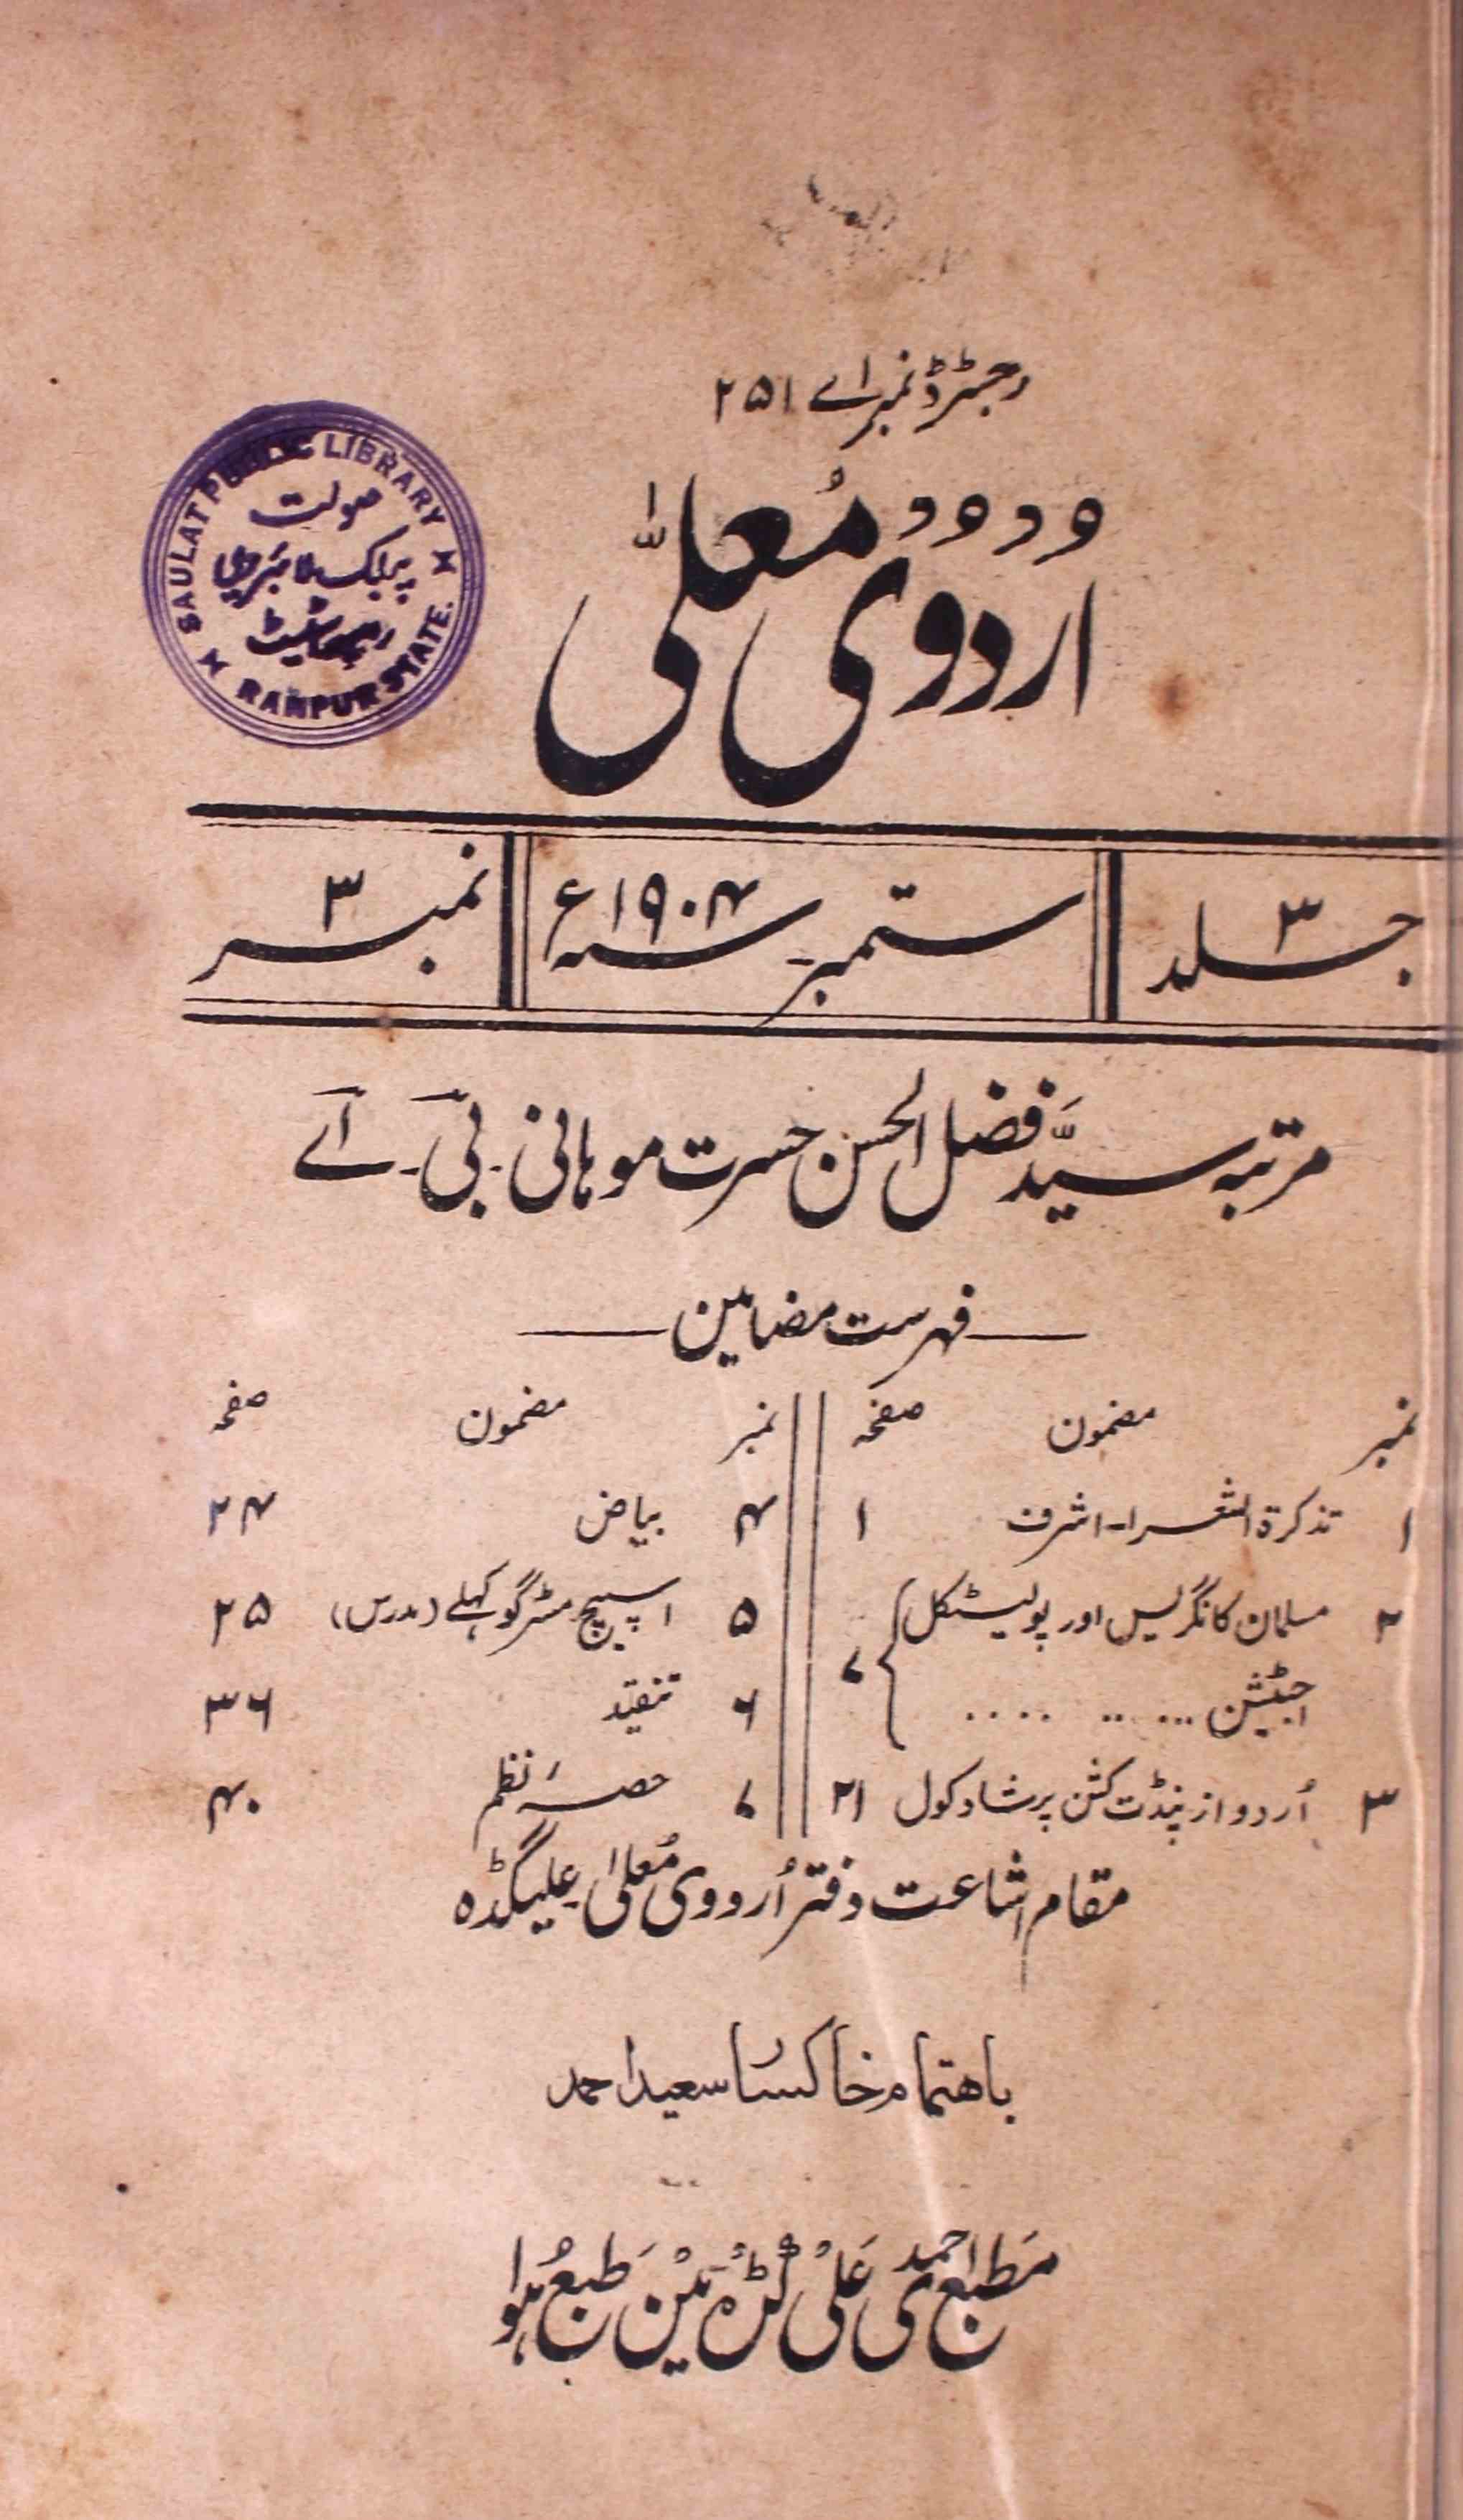 رجسٹرڈ نمبر اے ۲۵۱
اردوی معلّٰی
SAULAT PUBLIC LIBRARY
صولت
پبلک لائبریری
RAMPUR STATE.
جلد ۳
ستمبر سنہ ۱۹۰۴ء
نمبر ۳
مرتبہ سیّد فضل الحسن حسرت موہانی۔ بی۔ اے
فہرست مضامین
نمبر مضمون صفحہ
۱ تذکرۃ الشعرا۔ اشرف ۱
۲ مسلمان کانگریس اور پولیٹکل
اجٹیشن ... .. .... ۷
۳ اُردو از پنڈت کشن پرشاد کول ۲۱
نمبر مضمون صفحہ
۴ بیاض ۲۴
۵ اسپیچ مسٹر گوکہلے (مدرس) ۲۵
۶ تنقید ۳۶
۷ حصہ نظم ۴۰
مقام اشاعت دفتر اُردوی مُعلیٰ علیگڈہ
باھتمام خاکسار سعید احمد
مَطبع احمدی عَلی گڑہ مین طبع ہوا